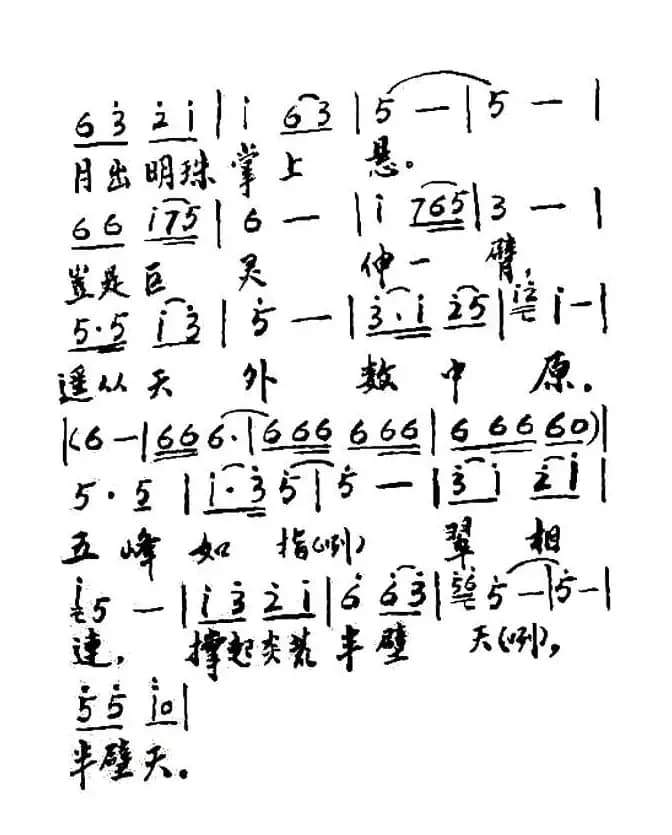 6 3̇ 2̇ i | i 6 3̇ | 5̇ — | 5 — |
月出明珠掌上悬。
6 6 i 7 5 | 6 — | i 7 6 5 | 3 — |
岂是巨灵伸一臂,
5·5 i 3̇ | 5̇ — | 3̇·i 2̇ 5 | i 2̇ i — |
遥从天外数中原。
| (6 — | 6 6 6· | 6 6 6 6 6 6 | 6 6 6 6 0) |
5·5 | i·3̇ 5̇ | 5̇ — | 3̇ i 2̇ i |
五峰如指(咧)翠相
i 5 — | i 3̇ 2̇ i | 6̇ 6̇ 3̇ | 5̇ 6̇ 5̇ — | 5̇ — |
連,撑起炎荒半壁天(咧),
5̇ 5̇ i 0 |
半壁天。